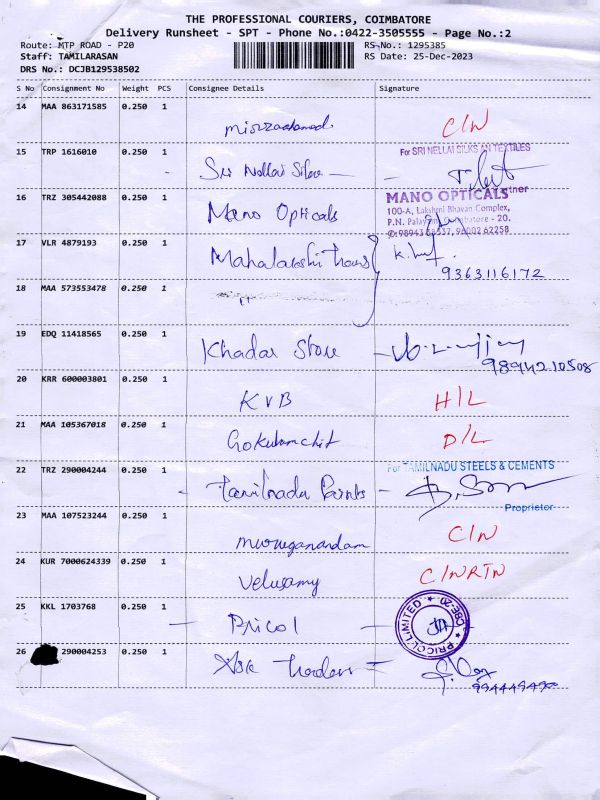 THE PROFESSIONAL COURIERS, COIMBATORE
Delivery Runsheet - SPT - Phone No.:0422-3505555 - Page No.:2
Route: MTP ROAD - P20 RS No.: 1295385
Staff: TAMILARASAN RS Date: 25-Dec-2023
DRS No.: DCJB129538502
S No Consignment No Weight PCS Consignee Details Signature
14 MAA 863171585 0.250 1 C/N
15 TRP 1616010 0.250 1 Sri Nellai Silks For SRI NELLAI SILKS AN TEXTILES
16 TRZ 305442088 0.250 1 Mano Opticals MANO OPTICALS
100-A, Lakshmi Bhavan Complex,
17 VLR 4879193 0.250 1 9363116172
18 MAA 573553478 0.250 1 "
19 EDQ 11418565 0.250 1 Khadar Store 9894210508
20 KRR 600003801 0.250 1 KVB H/L
21 MAA 105367018 0.250 1 Gokulam chit D/L
22 TRZ 290004244 0.250 1 Tamilnadu Paints For TAMILNADU STEELS & CEMENTS
Proprietor
23 MAA 107523244 0.250 1 Muruganandam C/N
24 KUR 7000624339 0.250 1 Velusamy C/N RTN
25 KKL 1703768 0.250 1 Pricol PRICOL LIMITED CBE-20
26 290004253 0.250 1 Traders